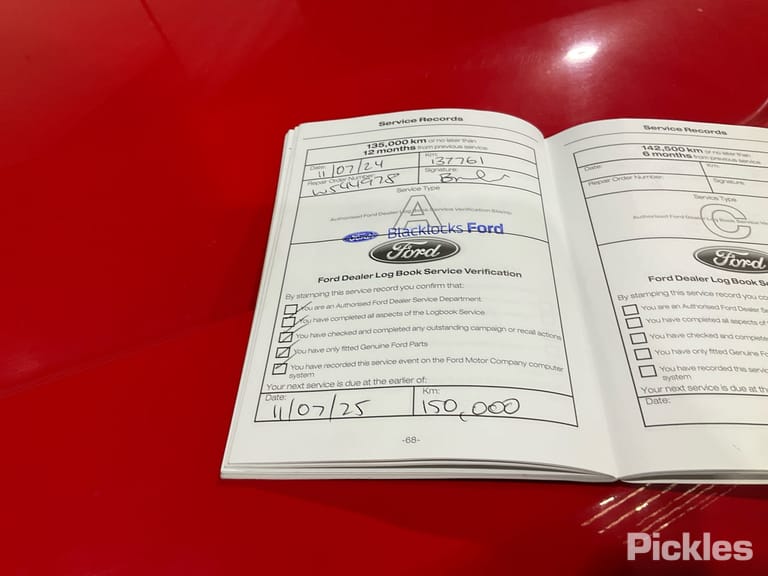 Service Records
135,000 km or no later than
12 months from previous service
Date: 11/07/24
Km: 137761
Repair Order Number: W544978
Signature:
Service Type
A
Authorised Ford Dealer Log Book Service Verification Stamp
Ford Blacklocks Ford
Ford
Ford Dealer Log Book Service Verification
By stamping this service record you confirm that:
You are an Authorised Ford Dealer Service Department
You have completed all aspects of the Logbook Service
You have checked and completed any outstanding campaign or recall actions
You have only fitted Genuine Ford Parts
You have recorded this service event on the Ford Motor Company computer
system
Your next service is due at the earlier of:
Date: 11/07/25
Km: 150,000
-68-
Service Records
142,500 km or no later than
6 months from previous service
Date:
Km:
Repair Order Number:
Signature:
Service Type
C
Authorised Ford Dealer Log Book Service Verification
Ford
Ford Dealer Log Book Se
By stamping this service record you con
You are an Authorised Ford Dealer Se
You have completed all aspects of
You have checked and complete
You have only fitted Genuine F
You have recorded this servic
system
Your next service is due at the
Date:
Pickles